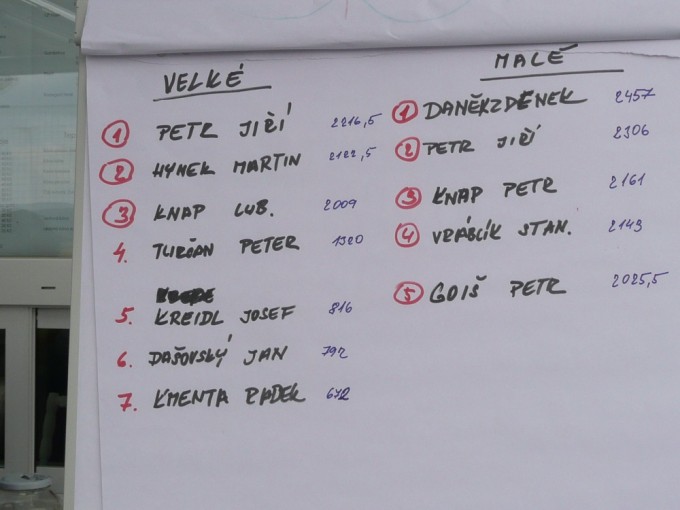 VELKÉ
1 PETR JIŘÍ 2216,5
2 HYNEK MARTIN 2122,5
3 KNAP LUB. 2009
4. TURŇAN PETER 1320
5. KREIDL JOSEF 816
6. DAŠOVSKÝ JAN 792
7. KMENTA RADEK 672
MALÉ
1 DANĚK ZDENEK 2457
2 PETR JIŘÍ 2306
3 KNAP PETR 2161
4 VRÁBLÍK STAN. 2143
5 GOIŠ PETR 2025,5